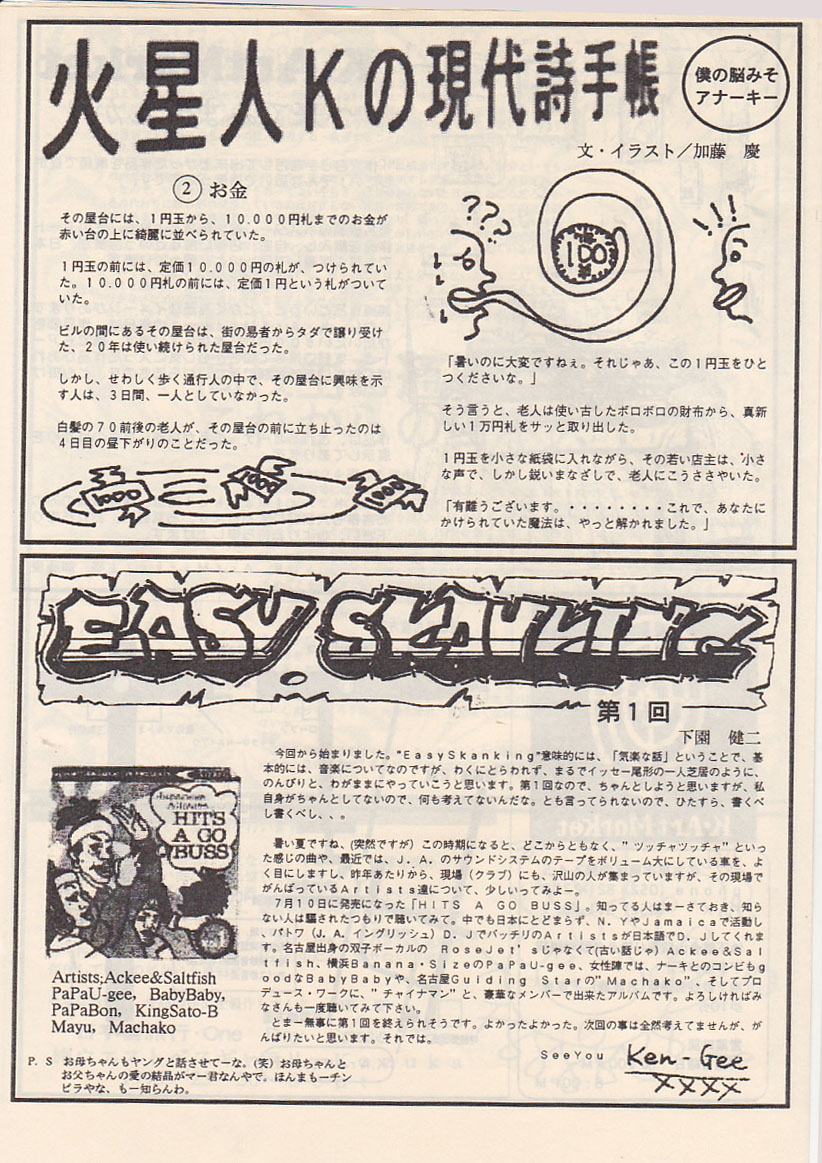 火星人Kの現代詩手帳
僕の脳みそ
アナーキー
文・イラスト／加藤　慶
② お金
その屋台には、１円玉から、１０.０００円札までのお金が
赤い台の上に綺麗に並べられていた。
１円玉の前には、定価１０.０００円の札が、つけられてい
た。１０.０００円札の前には、定価１円という札がついて
いた。
ビルの間にあるその屋台は、街の易者からタダで譲り受け
た、２０年は使い続けられた屋台だった。
しかし、せわしく歩く通行人の中で、その屋台に興味を示
す人は、３日間、一人としていなかった。
白髪の７０前後の老人が、その屋台の前に立ち止ったのは
４日目の昼下がりのことだった。
1000
1000
???
100
!!!
「暑いのに大変ですねぇ。それじゃあ、この１円玉をひと
つくださいな。」
そう言うと、老人は使い古したボロボロの財布から、真新
しい１万円札をサッと取り出した。
１円玉を小さな紙袋に入れながら、その若い店主は、小さ
な声で、しかし鋭いまなざしで、老人にこうささやいた。
「有難うございます。・・・・・・・・これで、あなたに
かけられていた魔法は、やっと解かれました。」
EASY SKANKING
第１回
下園　健二
今回から始まりました。"ＥａｓｙＳｋａｎｋｉｎｇ"意味的には、「気楽な話」ということで、基
本的には、音楽についてなのですが、わくにとらわれず、まるでイッセー尾形の一人芝居のように、
のんびりと、わがままにやっていこうと思います。第１回なので、ちゃんとしようと思いますが、私
自身がちゃんとしてないので、何も考えてないんだな。とも言ってられないので、ひたすら、書くべ
し書くべし、、。
暑い夏ですね、(突然ですが）この時期になると、どこからともなく、”ツッチャツッチャ”といっ
た感じの曲や、最近では、Ｊ．Ａ．のサウンドシステムのテープをボリューム大にしている車を、よ
く目にしますし、昨年あたりから、現場（クラブ）にも、沢山の人が集まっていますが、その現場で
がんばっているＡｒｔｉｓｔｓ達について、少しいってみよー。
７月１０日に発売になった「ＨＩＴＳ　Ａ　ＧＯ　ＢＵＳＳ」。知ってる人はまーさておき、知ら
ない人は騙されたつもりで聴いてみて。中でも日本にとどまらず、Ｎ．ＹやＪａｍａｉｃａで活動し
、パトワ（Ｊ．Ａ．イングリッシュ）Ｄ．ＪでバッチリのＡｒｔｉｓｔｓが日本語でＤ．Ｊしてくれま
す。名古屋出身の双子ボーカルの　ＲｏｓｅＪｅｔ’ｓじゃなくて(古い話じゃ）Ａｃｋｅｅ＆Ｓａｌ
ｔｆｉｓｈ、横浜Ｂａｎａｎａ・ＳｉｚｅのＰａＰａＵ-ｇｅｅ、女性陣では、ナーキとのコンビもｇ
ｏｏｄなＢａｂｙＢａｂｙや、名古屋Ｇｕｉｄｉｎｇ　Ｓｔａｒの”Ｍａｃｈａｋｏ”、そしてプロ
デュース・ワークに、”チャイナマン”と、豪華なメンバーで出来たアルバムです。よろしければみ
なさんも一度聴いてみて下さい。
とまー無事に第１回を終えられそうです。よかったよかった。次回の事は全然考えてませんが、が
んばりたいと思います。それでは。
ＳｅｅＹｏｕ
Ken-Gee
XXXX
HITS
A GO
BUSS
Artists;Ackee&Saltfish
PaPaU-gee, BabyBaby,
PaPaBon, KingSato-B
Mayu, Machako
P. S お母ちゃんもヤングと話させてーな。(笑）お母ちゃんと
お父ちゃんの愛の結晶がマー君なんやで。ほんまもーチン
ピラやな、も一知らんわ。